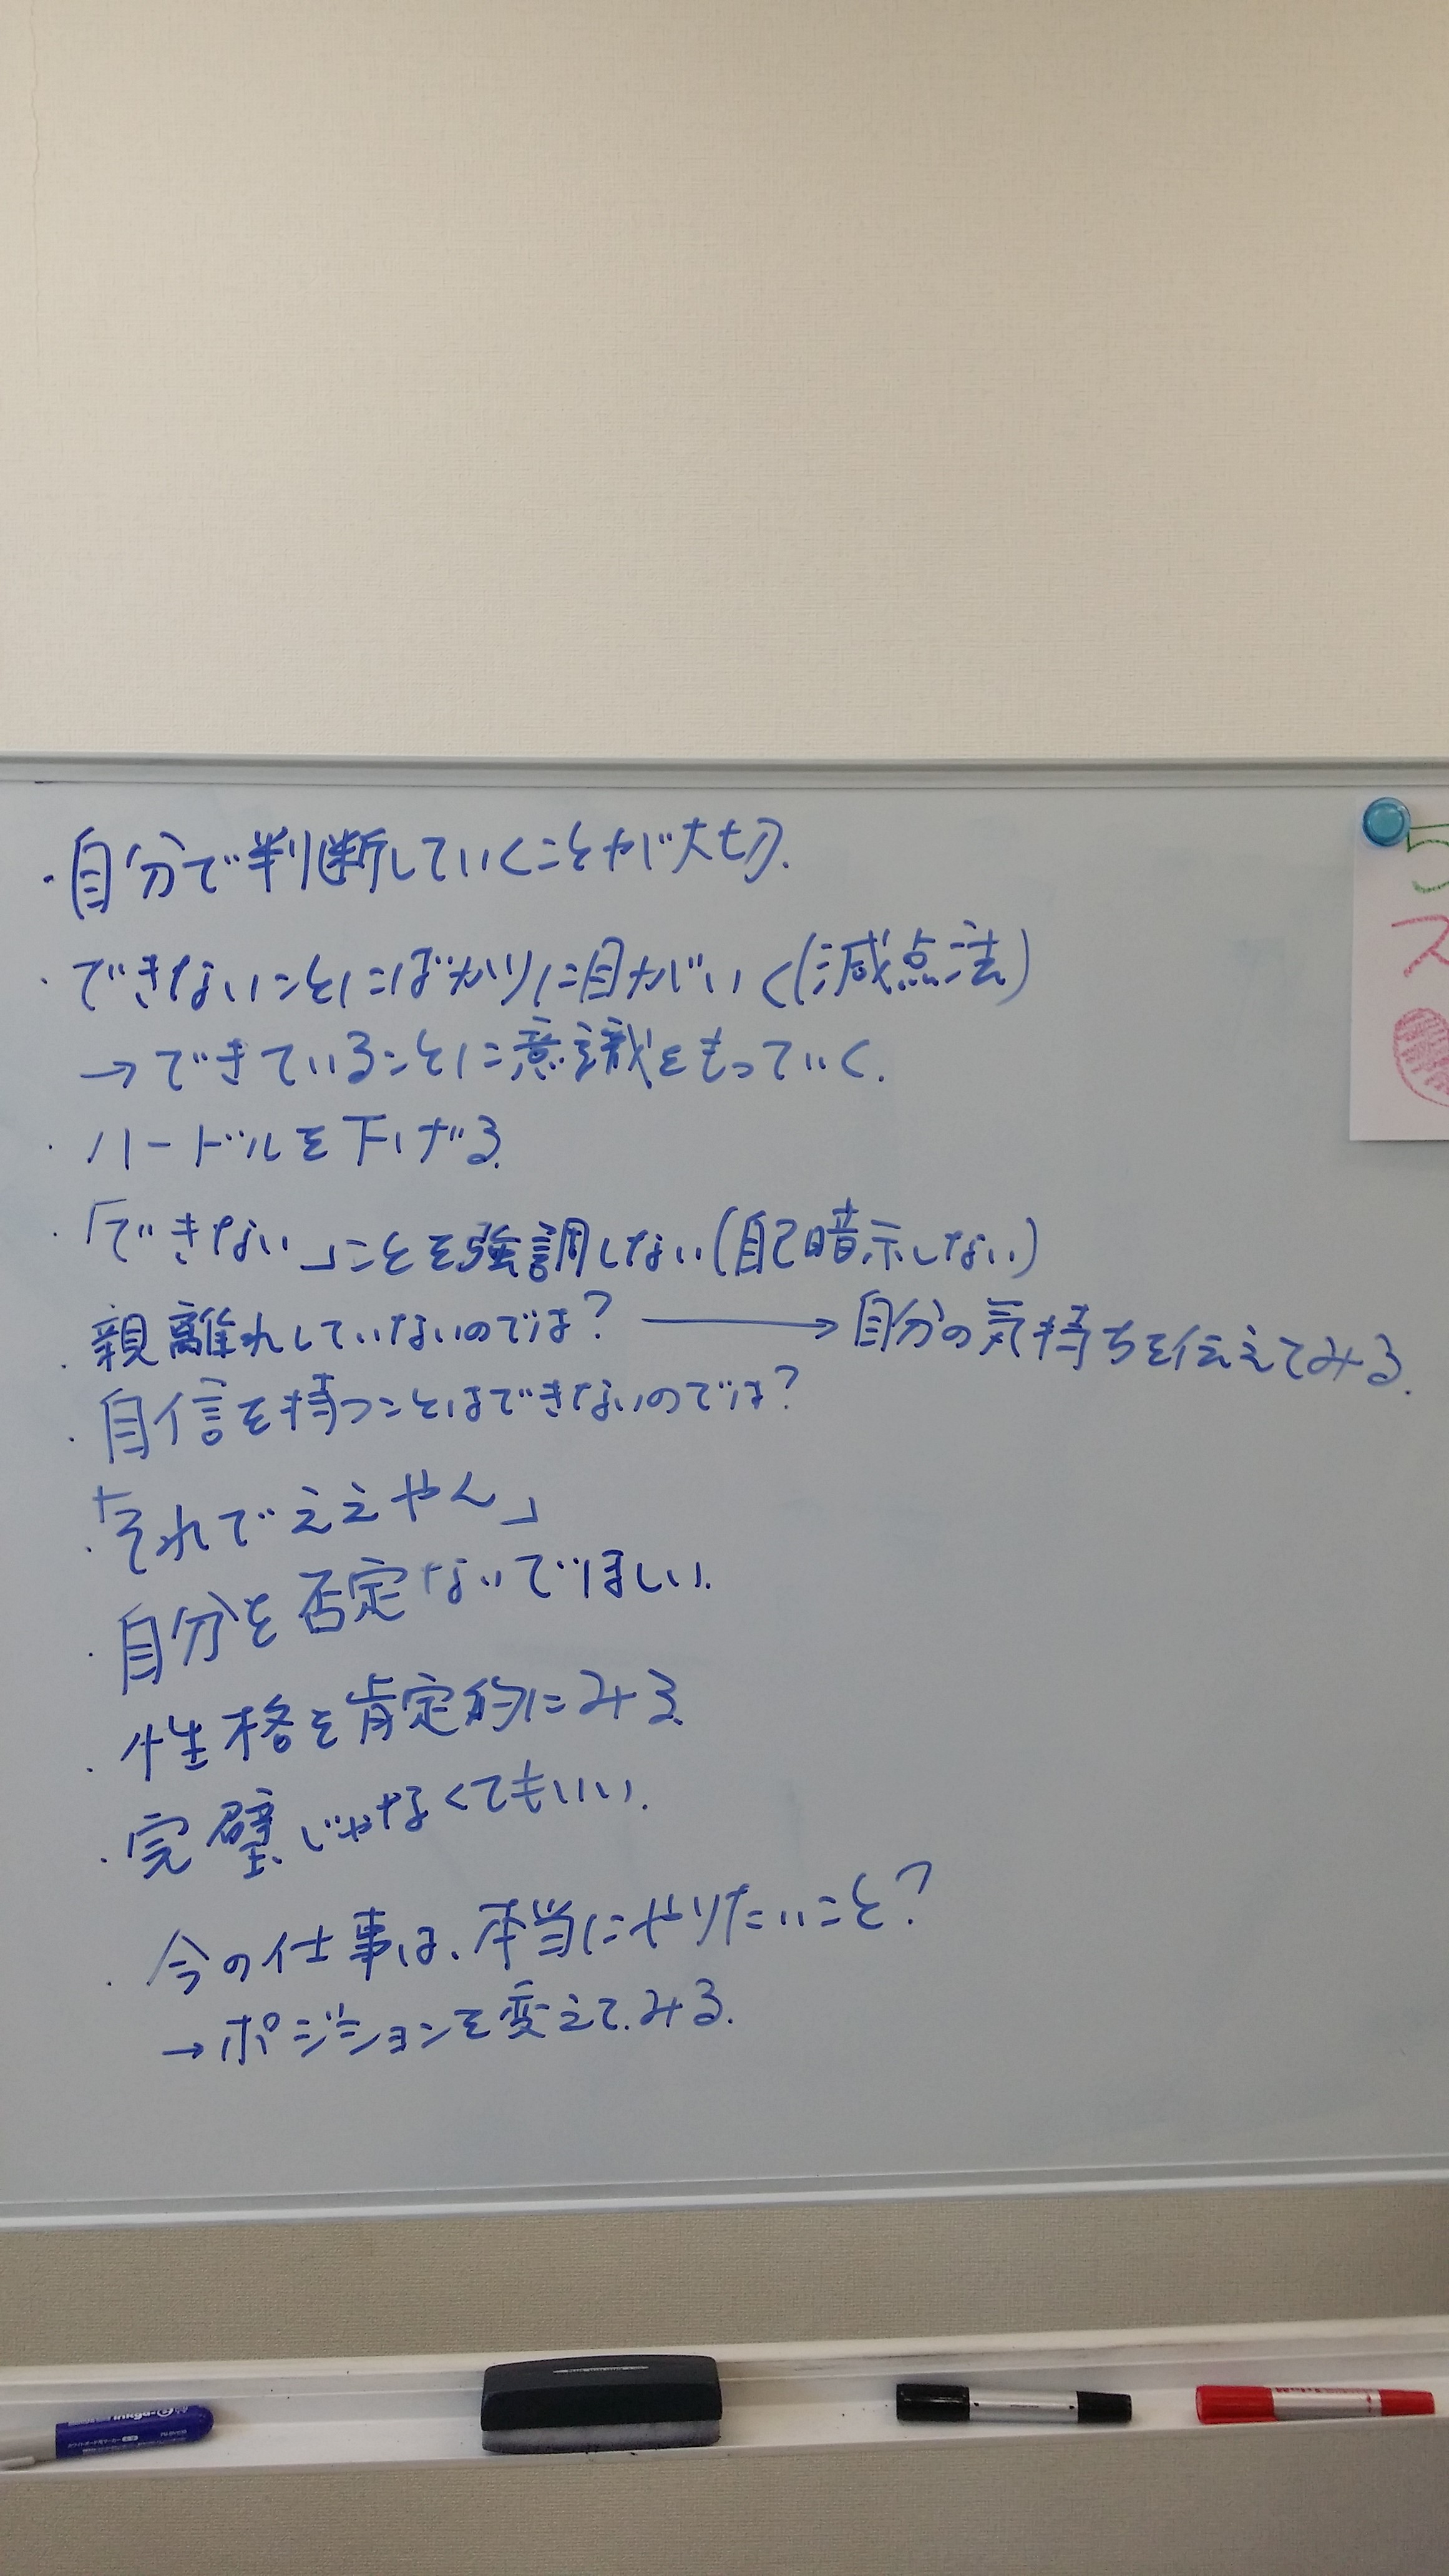 ・自分で判断していくことが大切.
・できないことにばかりに目がいく(減点法)
→できていることに意識をもっていく.
・ハードルを下げる.
・「できない」ことを強調しない(自己暗示しない)
・親離れしていないのでは?→自分の気持ちを伝えてみる.
・自信を持つことはできないのでは?
・「それでええやん」
・自分を否定ないでほしい.
・性格を肯定的にみる.
・完璧じゃなくてもいい.
・今の仕事は、本当にやりたいこと?
→ポジションを変えてみる.
ス
inkga